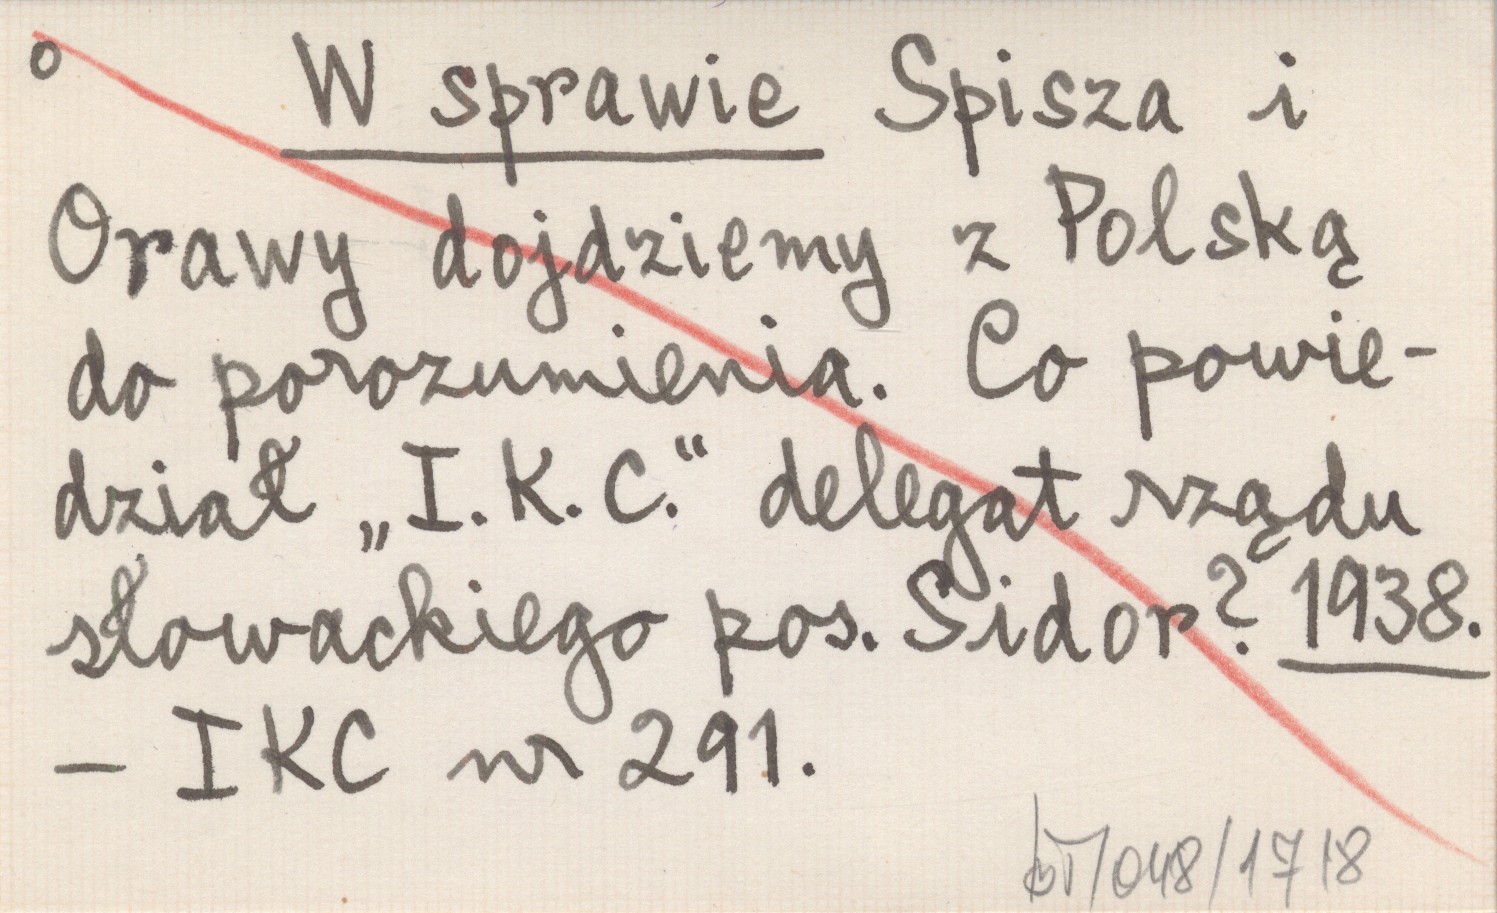 o W sprawie Spisza i
Orawy dojdziemy z Polską
do porozumienia. Co powie-
dział „I.K.C.“ delegat rządu
słowackiego pos. Sidor? 1938.
– IKC nr 291.
/048/1718